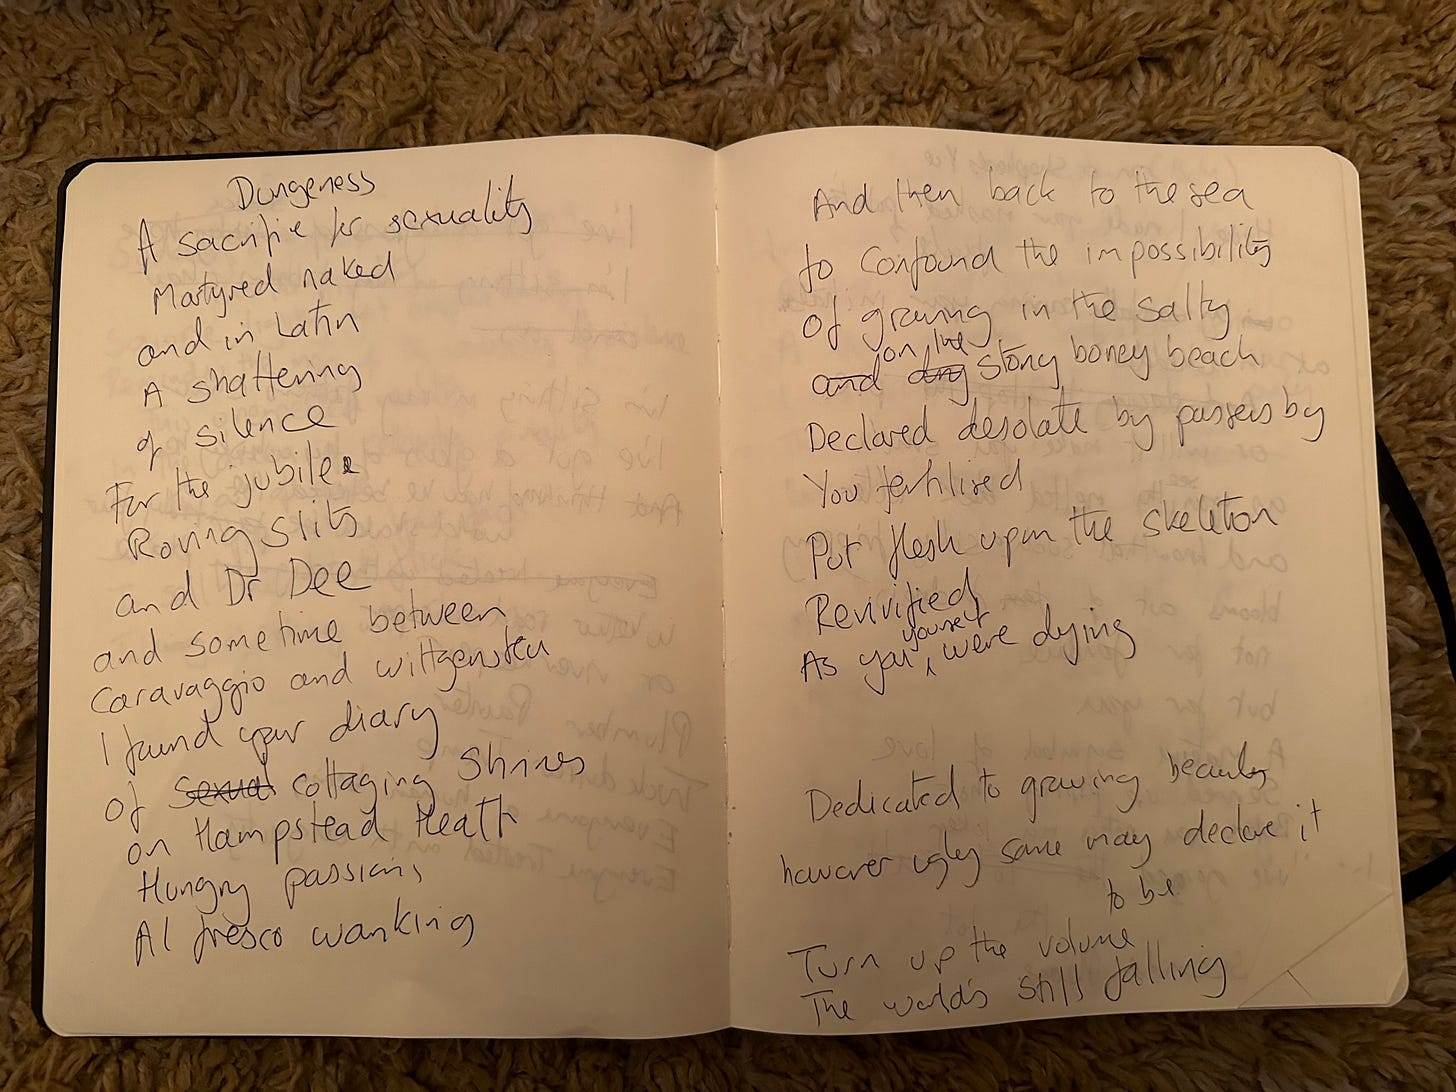 Dungeness
A sacrifie for sexuality
Martyred naked
and in Latin
A shattering
of silence
For the jubilee
Roving Slits
and Dr Dee
and sometime between
Caravaggio and wittgenstein
I found your diary
Of sexual cottaging Shrines
on Hampstead Heath
Hungry passions
Al fresco wanking
And then back to the sea
to confound the impossibility
Of growing in the salty
on the
and dry stony boney beach
Declared desolate by passers by
You fertilised
Put flesh upon the skeleton
Revivified
yourself
As you were dying
Dedicated to growing beauty
however ugly some may declare it
to be
Turn up the volume
The world's still falling